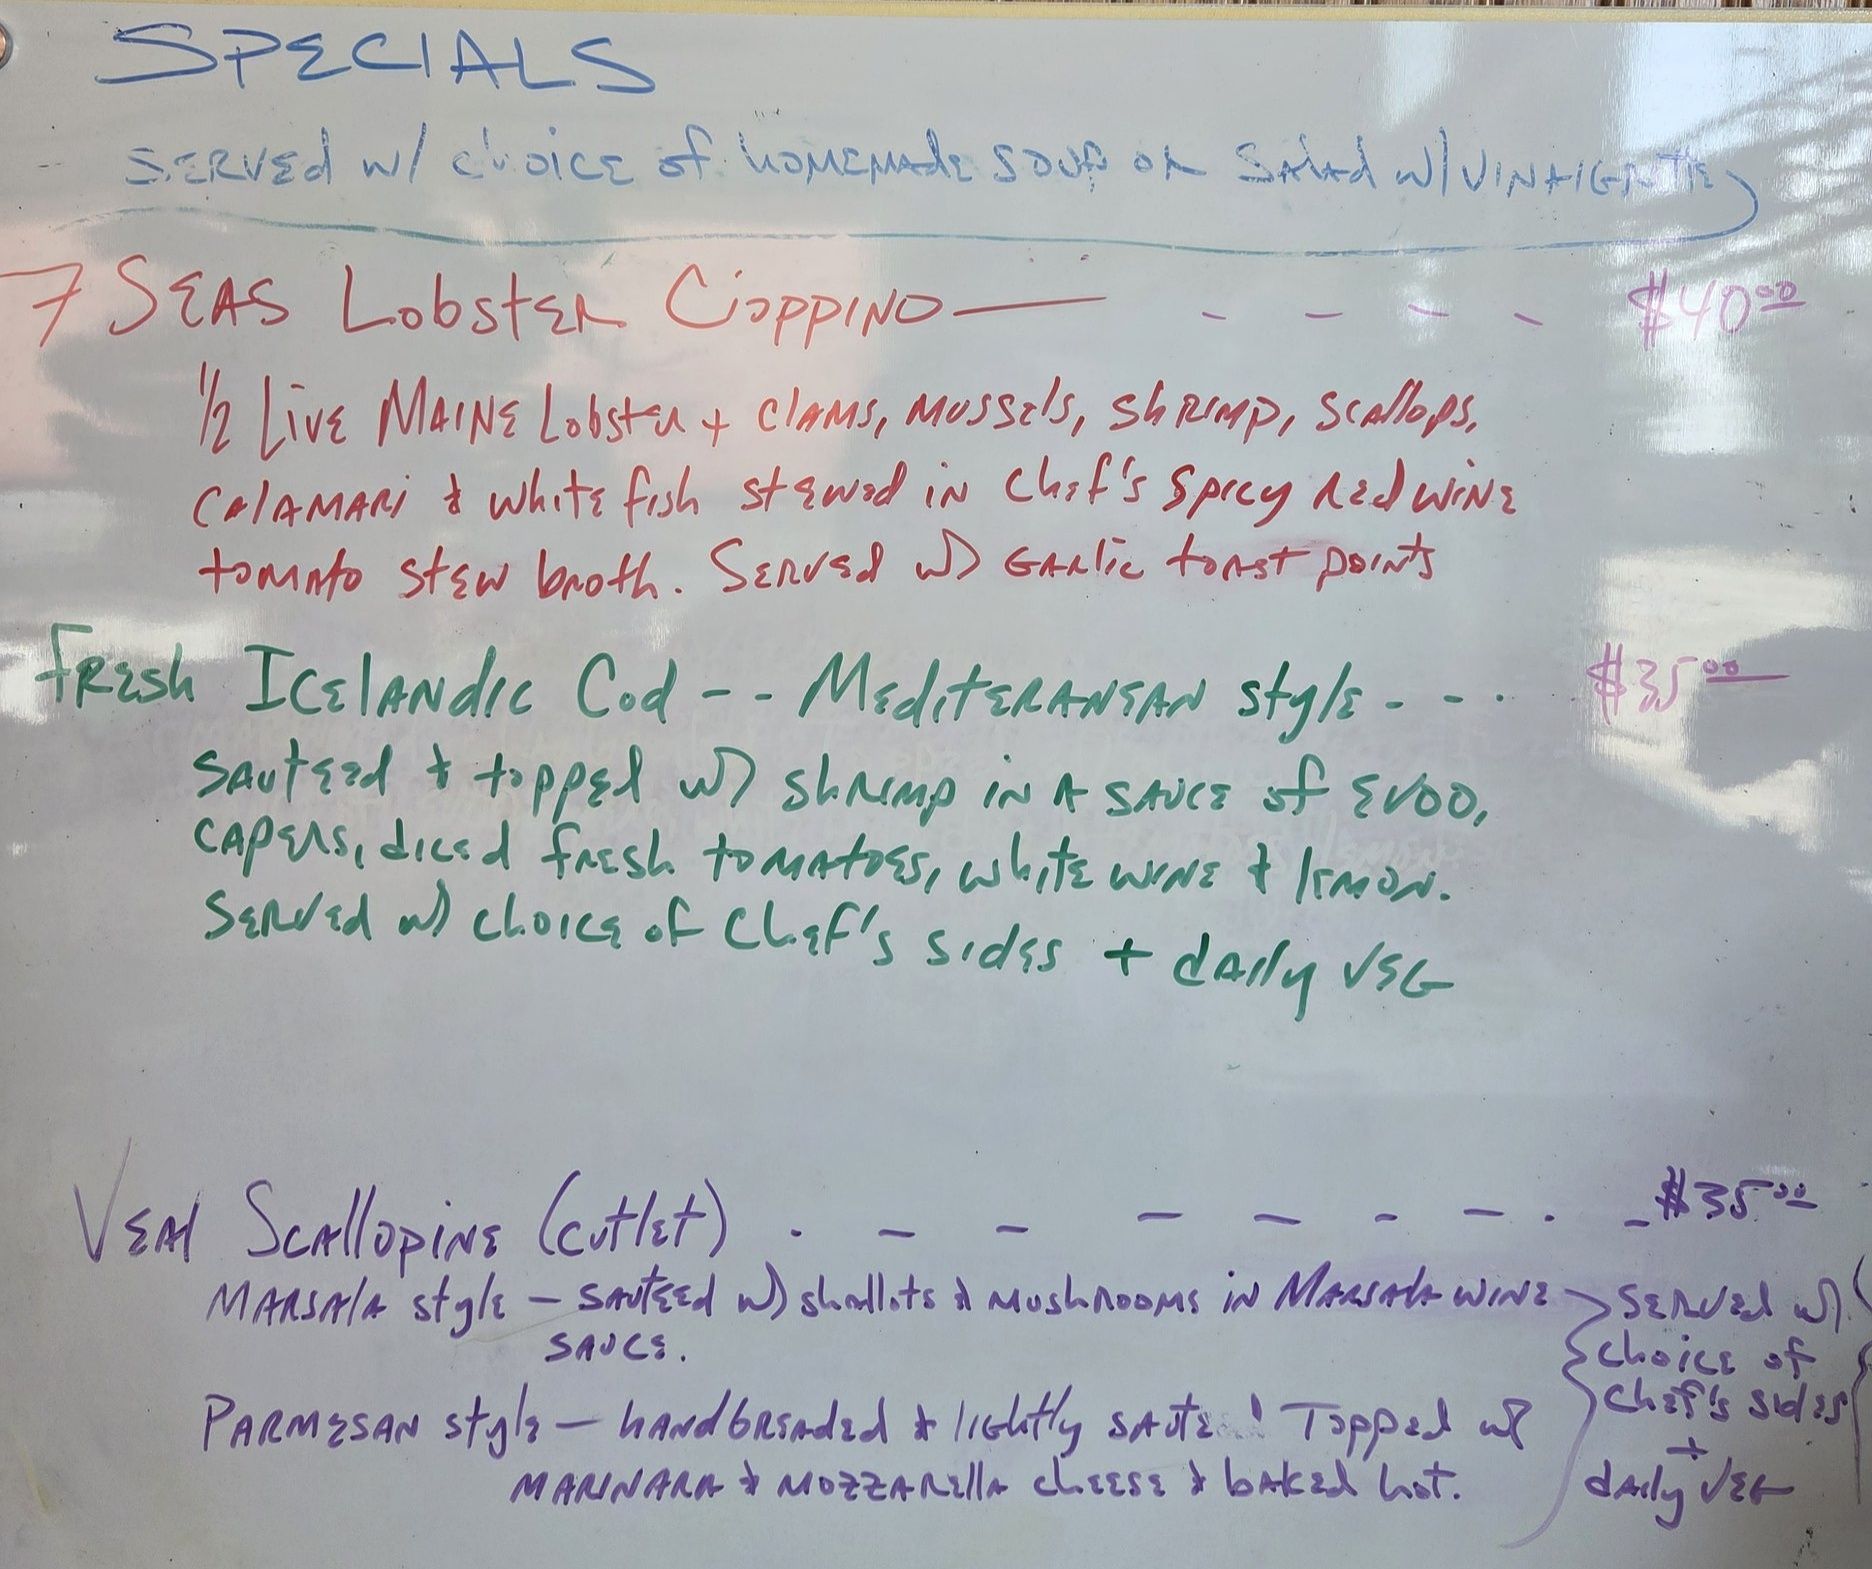 SPECIALS
SERVED w/ choice of HOMEMADE SOUP OR Salad w/ VINAIGRETTE
7 SEAS Lobster Cioppino — - - - - $40.00
1/2 Live MAINE Lobster + Clams, Mussels, Shrimp, Scallops,
Calamari & white fish stewed in Chef's Spicy Red wine
tomato stew broth. Served w/ Garlic toast points
Fresh Icelandic Cod -- Mediteranean style - - - $35.00
Sauteed & topped w/ shrimp in a sauce of EVOO,
capers, diced fresh tomatoes, white wine & lemon.
Served w/ choice of Chef's sides + daily veg
Veal Scallopine (cutlet) . - - - - - - . - $35.00
Marsala style - sauteed w/ shallots & mushrooms in Marsala wine
sauce.
Parmesan style - handbreaded & lightly saute Topped w/
marinara & mozzarella cheese & baked hot.
Served w/
choice of
Chef's sides
+
daily veg